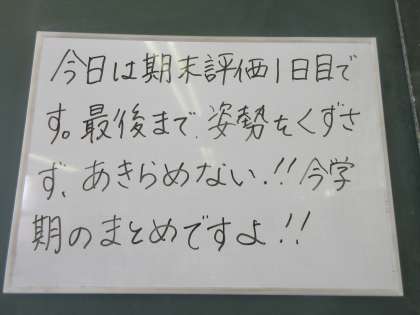 今日は期末評価1日目で
す。最後まで、姿勢をくずさ
ず、あきらめない!!今学
期のまとめですよ!!